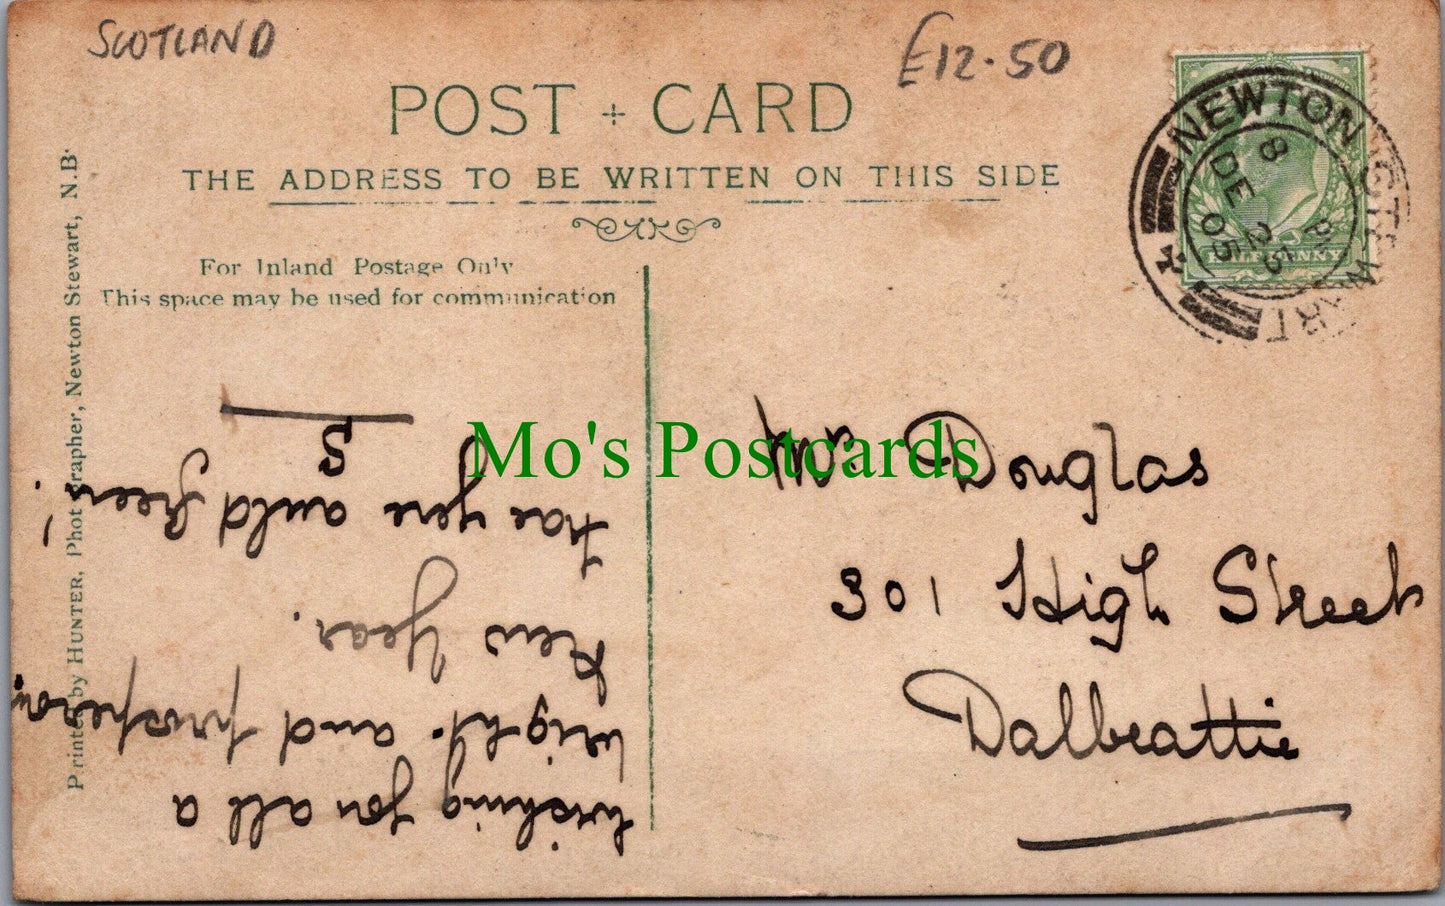 SCOTLAND
£12.50
POST + CARD
THE ADDRESS TO BE WRITTEN ON THIS SIDE
For Inland Postage Only
This space may be used for communication
Printed by HUNTER, Photographer, Newton Stewart, N.B.
NEWTON STEWART
8 PM
DE 25
05
HALFPENNY
Mo's Postcards
Mr Douglas
301 High Street
Dalbeattie
Wishing you all a
bright and prosperous
New Year.
Hae yere auld freen!
S